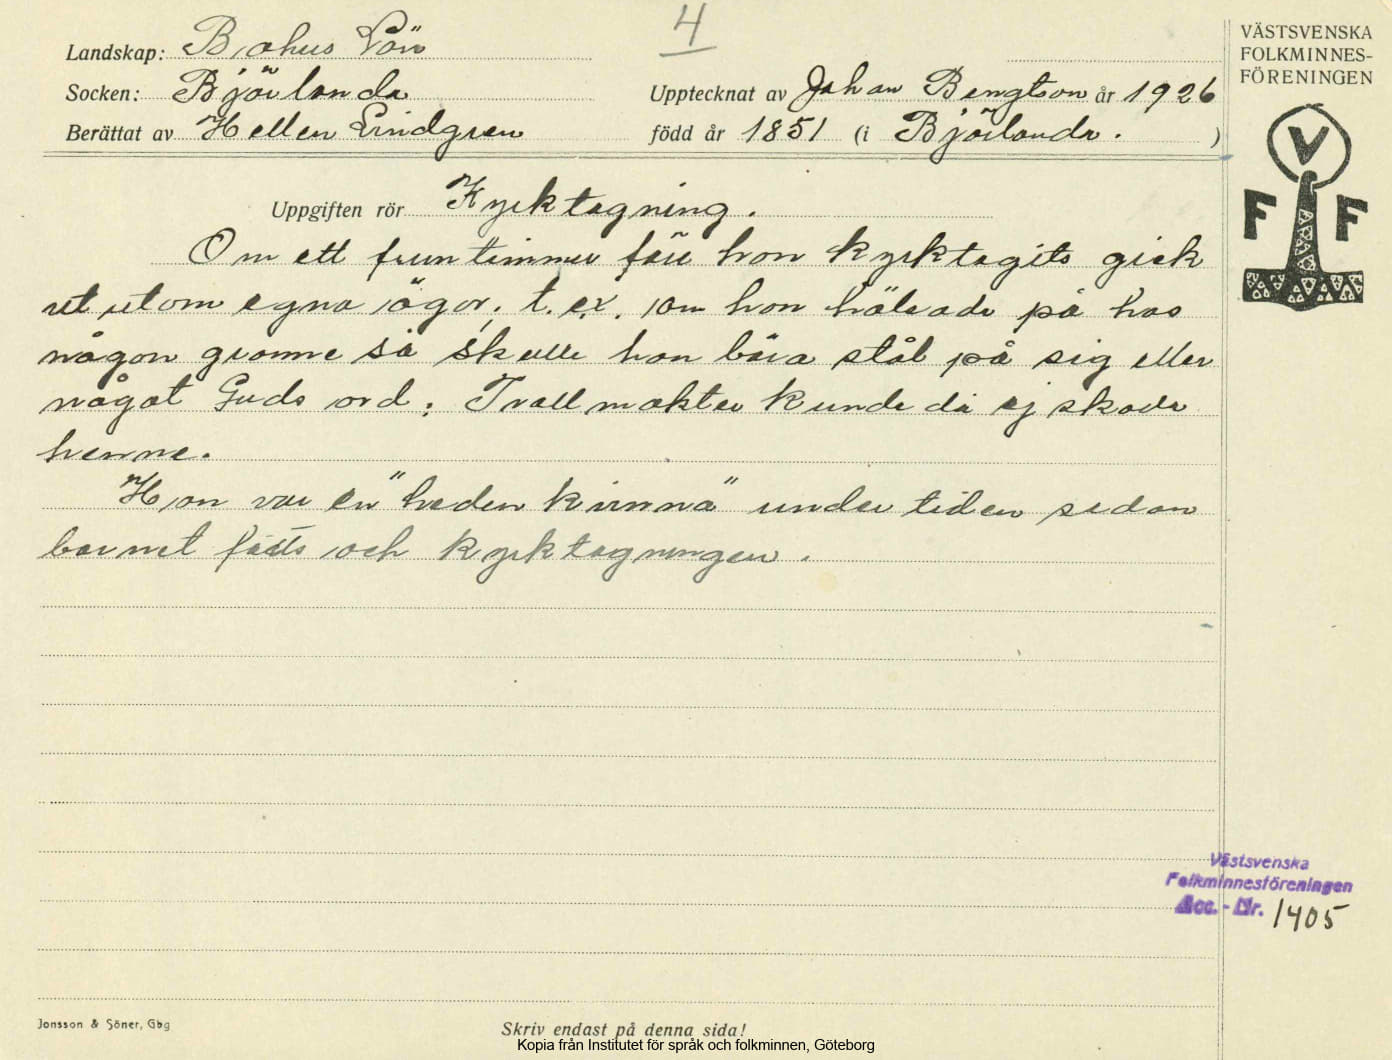 4
Landskap: Bohus Län
Socken: Björlanda
Upptecknat av Johan Bengtson år 1926
Berättat av Hellen Lindgren
född år 1851 (i Björlanda. )
VÄSTSVENSKA
FOLKMINNES-
FÖRENINGEN
V
F F
Uppgiften rör Kyrktagning.
Om ett fruntimmer före hon kyrktagits gick
ut utom egna ägor, t. ex. om hon hälsade på hos
någon granne så skulle hon bära stål på sig eller
något Guds ord; Trollmakter kunde då ej skada
henne.
Hon var en "hedenkvinna" under tiden sedan
barnet fötts och kyrktagningen.
Västsvenska
Folkminnesföreningen
Acc. - Nr. 1405
Jonsson & Söner, Gbg
Skriv endast på denna sida!
Kopia från Institutet för språk och folkminnen, Göteborg